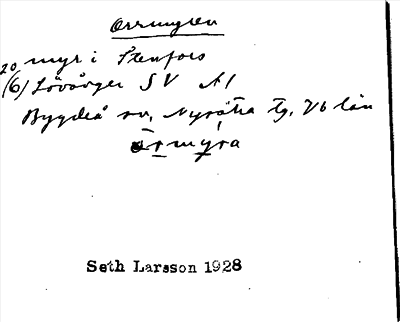 Orrmyren
20 myr i Stenfors
(6) Lövånger SV A1
Bygdeå sn, Nysätra tg, Vb län
ɷrmyra
Seth Larsson 1928